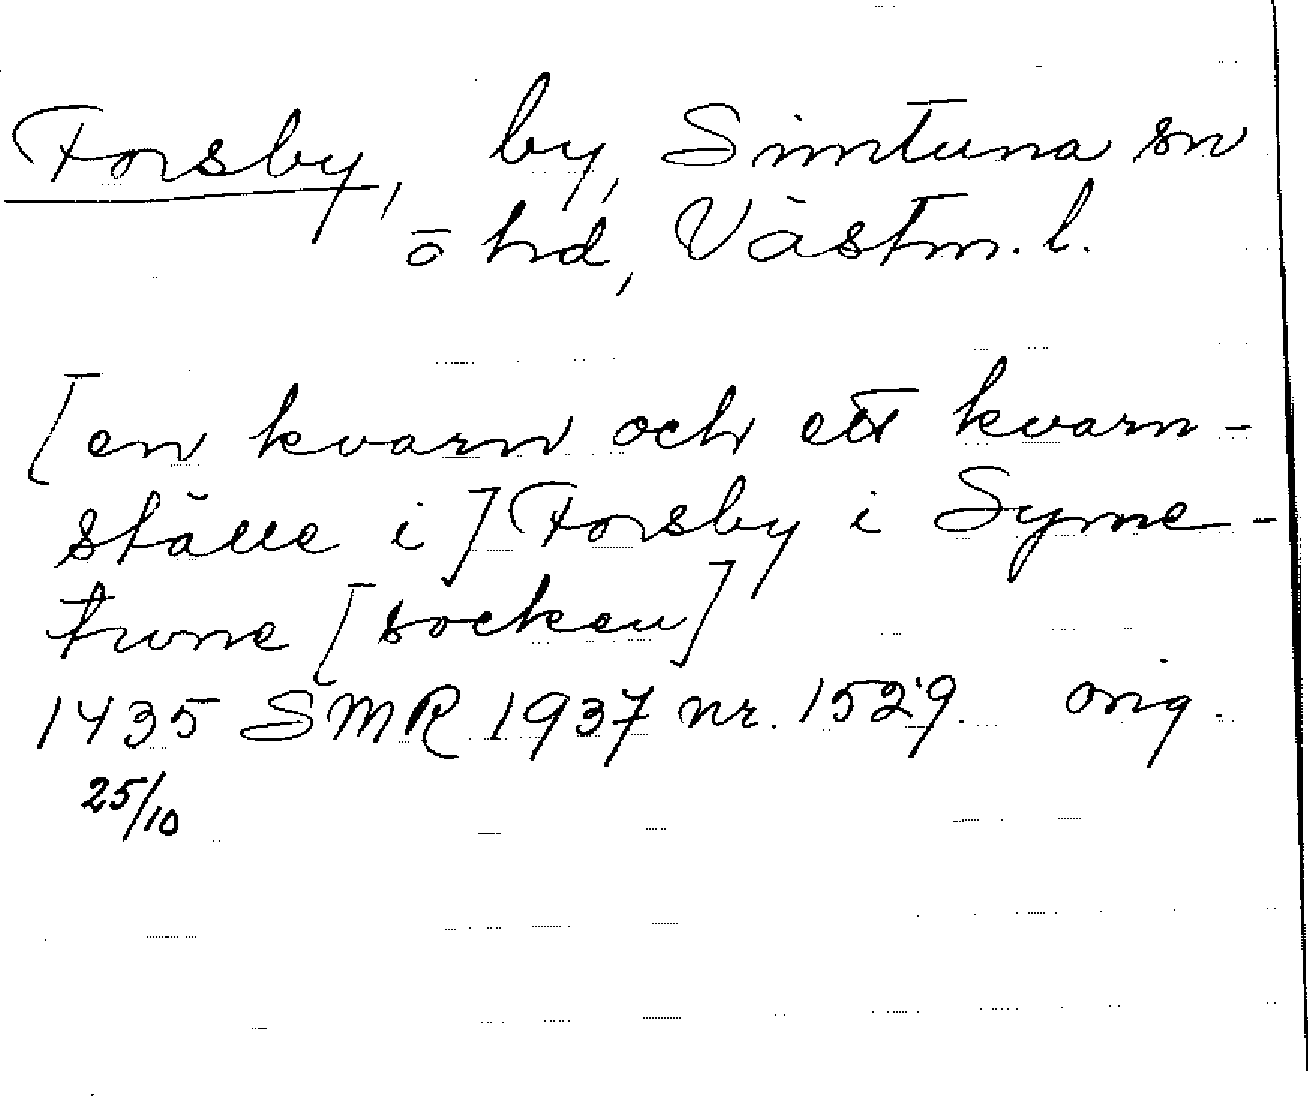 Forsby, by, Simtuna sn
ö hd, Västm. l.
[en kvarn och ett kvarn-
ställe i] Forsby i Syme-
twne [socken]
1435 SMR 1937 nr. 1529. orig.
25/10